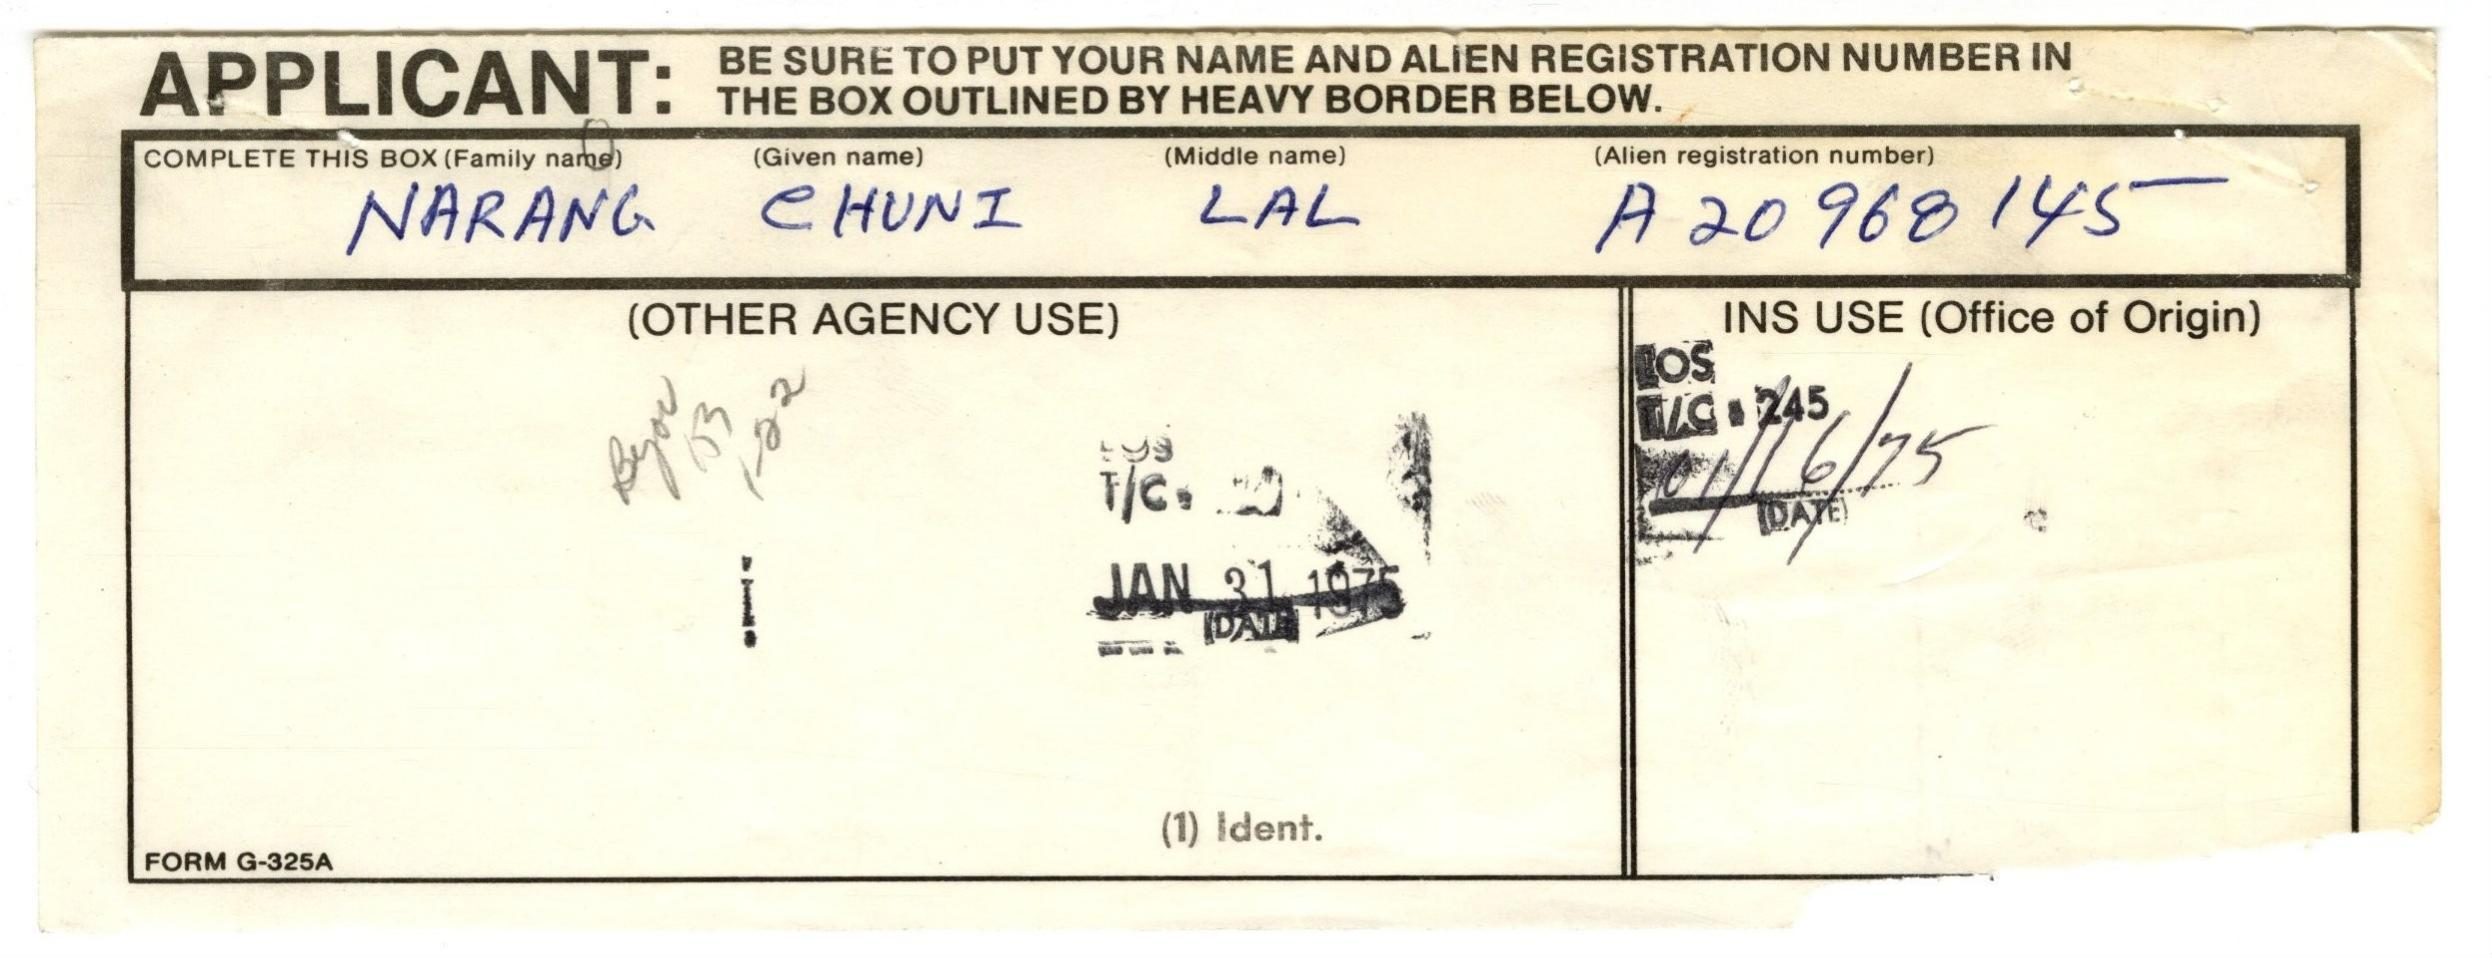 APPLICANT: BE SURE TO PUT YOUR NAME AND ALIEN REGISTRATION NUMBER IN
THE BOX OUTLINED BY HEAVY BORDER BELOW.
COMPLETE THIS BOX (Family name) (Given name) (Middle name) (Alien registration number)
NARANG CHUNI LAL A20 968 145
(OTHER AGENCY USE)
T/C
JAN 31 1975
(DATE)
(1) Ident.
FORM G-325A
INS USE (Office of Origin)
LOS
T/C 245
01/16/75
(DATE)